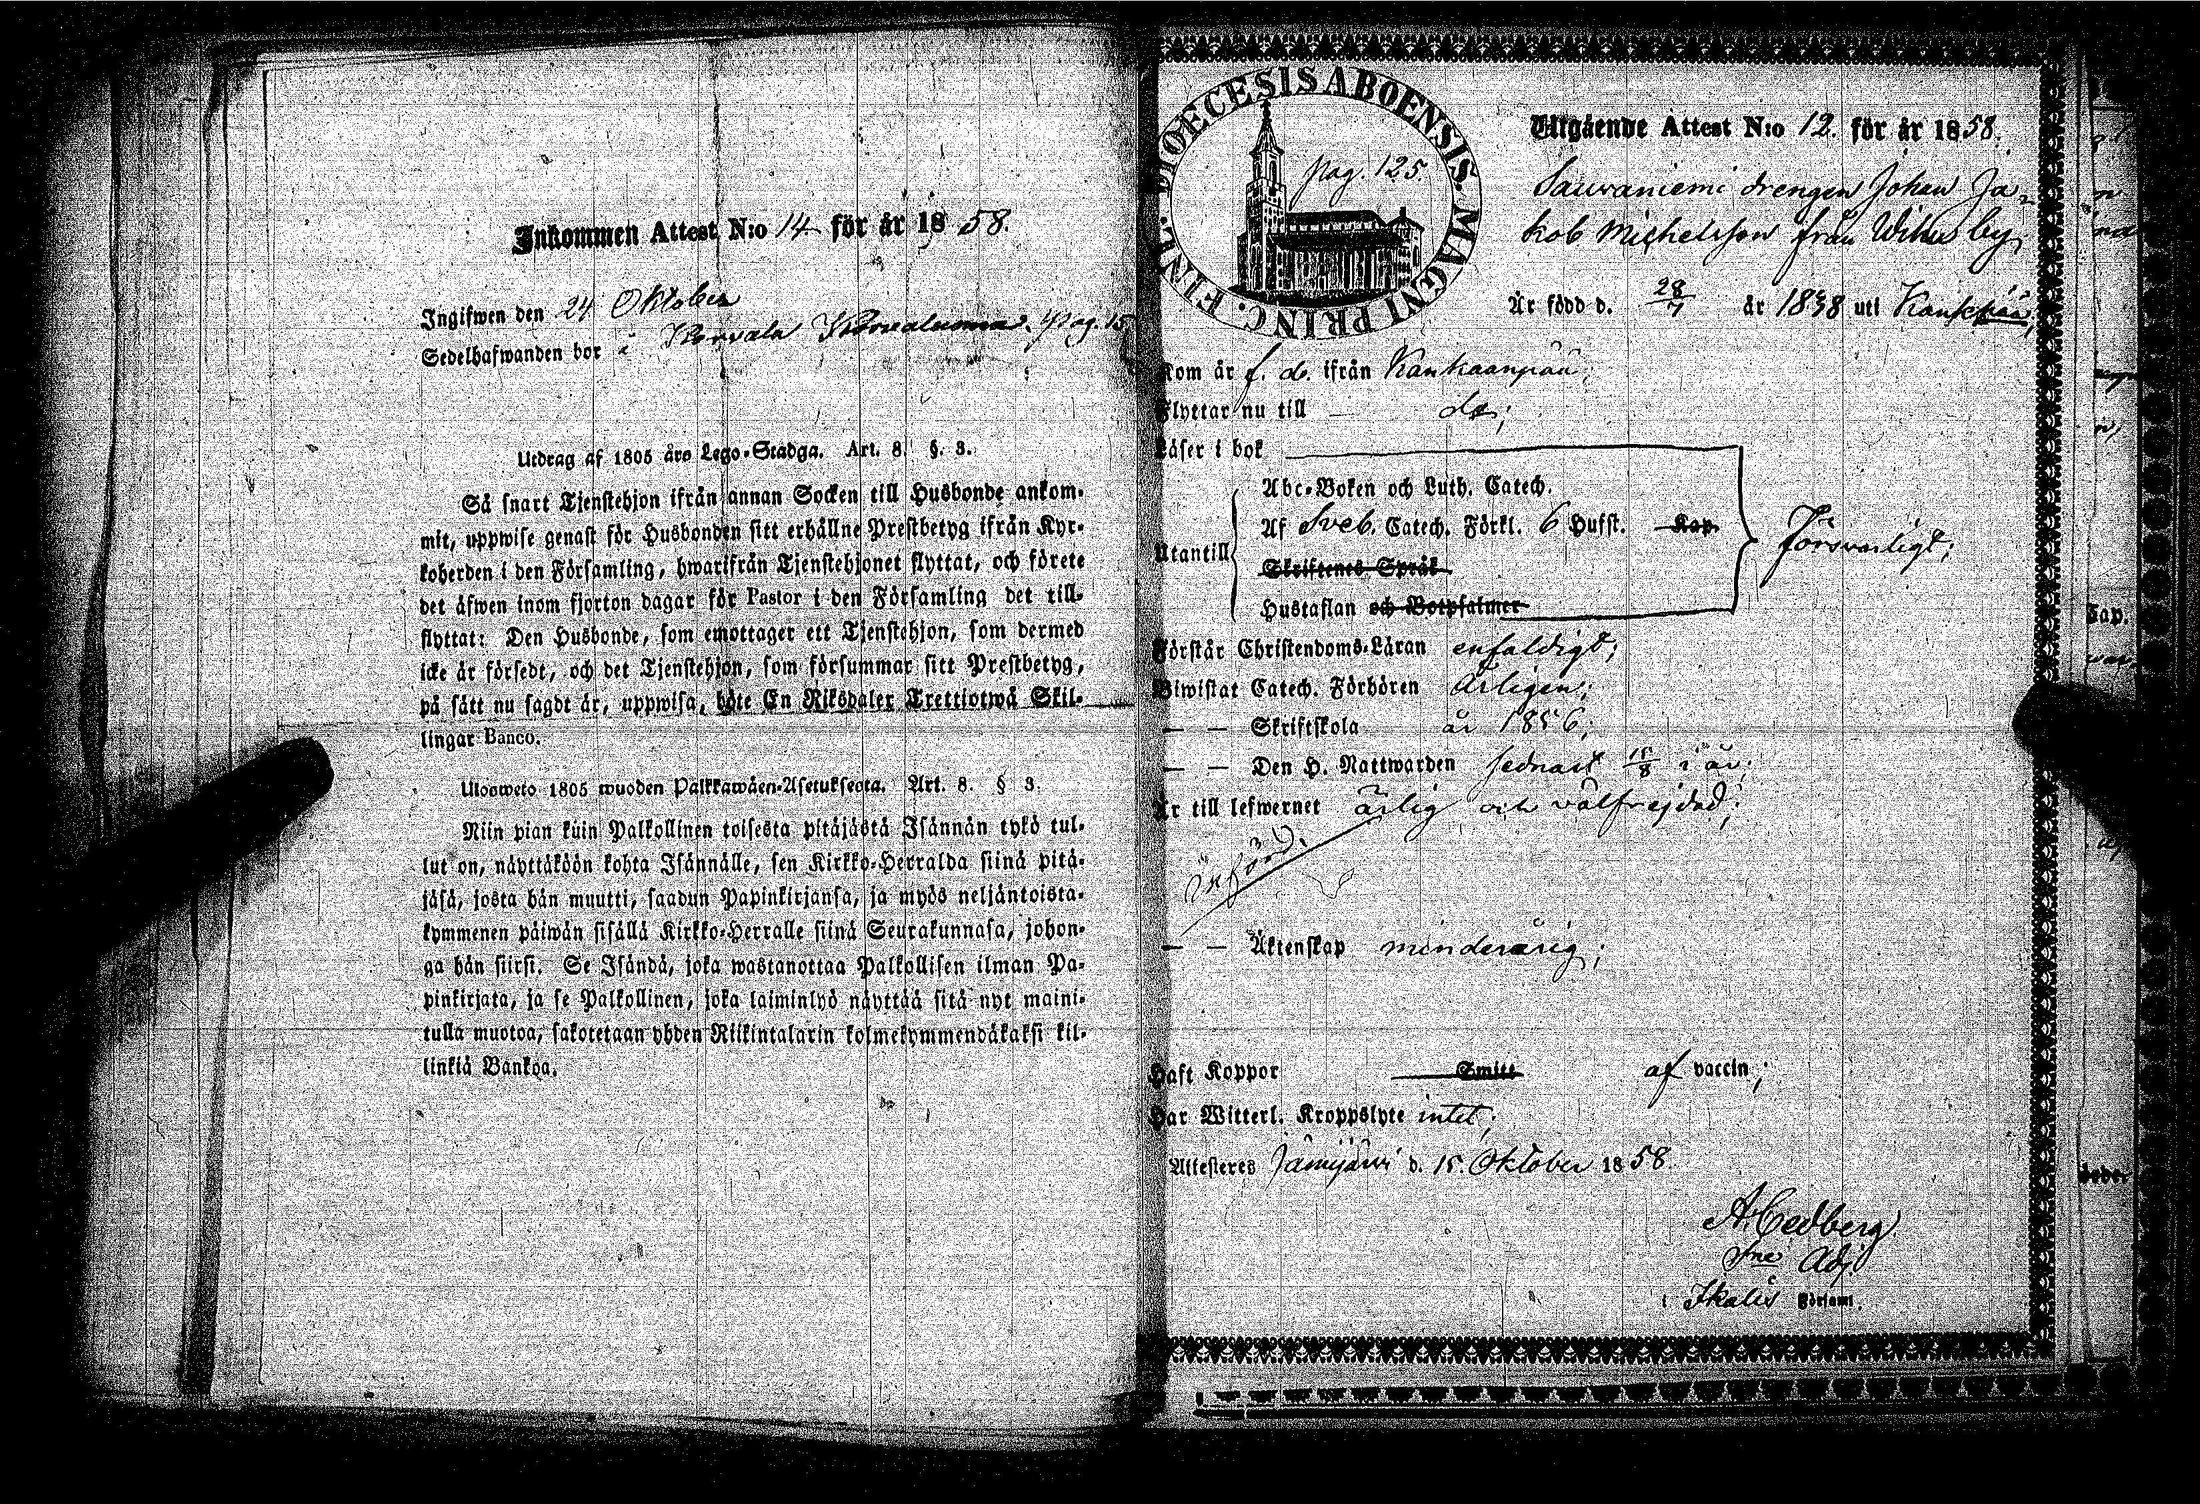 Inkommen Attest N:o 14 för år 1858.
Ingifwen den 24 Oktober
Sedelhafwanden bor i Korvala Korvaluoma. Pag. 15
Utdrag af 1805 års Lego-Stadga. Art. 8. §. 3.
Så snart Tjenstehjon ifrån annan Socken till Husbonde ankom-
mit, uppwise genast för Husbonden sitt erhållne Prestbetyg ifrån Kyr-
koherden i den Församling, hwarifrån Tjenstehjonet flyttat, och förete
det äfwen inom fjorton dagar för Pastor i den Församling det till-
flyttat: Den Husbonde, som emottager ett Tjenstehjon, som dermed
icke är försedt, och det Tjenstehjon, som försummar sitt Prestbetyg,
på sätt nu sagdt är, uppwisa, böte En Riksdaler Trettiotwå Skil-
lingar Banco.
Ulosweto 1805 wuoden Palkkawäen-Asetuksesta. Art. 8. § 3.
Niin pian kuin Palkollinen toisesta pitäjästä Isännän tykö tul-
lut on, näyttäköön kohta Isännälle, sen Kirkko-Herralda siinä pitä-
jäsä, josta hän muutti, saadun Papinkirjansa, ja myös neljäntoista-
kymmenen päiwän sisällä Kirkko-Herralle siinä Seurakunnasa, johon-
ga hän siirsi. Se Isändä, joka wastanottaa Palkollisen ilman Pa-
pinkirjata, ja se Palkollinen, joka laiminlyö näyttää sitä nyt maini-
tulla muotoa, sakotetaan yhden Riikintalarin kolmekymmendäkaksi kil-
linkiä Bankoa.
FINL. DIOECESIS ABOENSIS. MAGNI PRINC.
pag. 125.
Utgående Attest N:o 12. för år 1858.
Sauvaniemi drengen Johan Ja-
kob Michelsson från Wihu by;
Är född d. 28/7 år 1838 uti Kankpää;
Kom år f. d. ifrån Kankaanpää;
Flyttar nu till — do;
Läser i bok
Abc-Boken och Luth. Catech.
Utantill Af Sveb. Catech. Förkl. 6 Hufst. Kap.
Försvarligt;
Skriftenes Språk
Hustaflan och Botpsalmer
Förstår Christendoms-Läran enfaldigt;
Biwistat Catech. Förhören årligen;
— — Skriftskola år 1856;
— — Den H. Nattwarden sednast 15/8 i år;
Är till lefwernet ärlig och välfrejdad;
införd.
— — Äktenskap minderårig;
Haft Koppor Smitt af vaccin;
Har Witterl. Kroppslyte intet;
Attesteres Jämijärvi d. 15. Oktober 1858.
A. Cedberg
Sne Adj.
i Ikalis Församl.